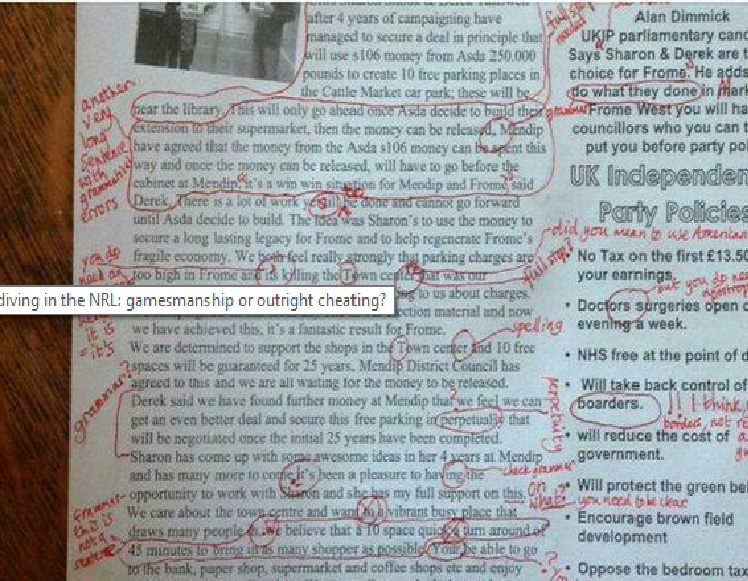 after 4 years of campaigning have
managed to secure a deal in principle that
will use s106 money from Asda 250.000
pounds to create 10 free parking places in
the Cattle Market car park; these will be
near the library. This will only go ahead once Asda decide to build their
extension to their supermarket, then the money can be released, Mendip
have agreed that the money from the Asda s106 money can be spent this
way and once the money can be released, will have to go before the
cabinet at Mendip, it's a win win situation for Mendip and Frome said
Derek, There is a lot of work to be done and cannot go forward
until Asda decide to build. The idea was Sharon's to use the money to
secure a long lasting legacy for Frome and to help regenerate Frome's
fragile economy. We both feel really strongly that parking charges are
too high in Frome and its killing the Town center that was our
diving in the NRL: gamesmanship or outright cheating?
to us about charges.
ction material and now
we have achieved this, it's a fantastic result for Frome.
We are determined to support the shops in the Town center and 10 free
spaces will be guaranteed for 25 years. Mendip District Council has
agreed to this and we are all waiting for the money to be released.
Derek said we have found further money at Mendip that we feel we can
get an even better deal and secure this free parking in perpetually that
will be negotiated once the initial 25 years have been completed.
Sharon has come up with some awesome ideas in her 4 years at Mendip
and has many more to come it's been a pleasure to having the
opportunity to work with Sharon and she has my full support on this.
We care about the town centre and want a vibrant busy place that
draws many people in, we believe that a 10 space quick turn around of
45 minutes to bring in as many shopper as possible. Your be able to go
to the bank, paper shop, supermarket and coffee shops etc and enjoy
Alan Dimmick
UKIP parliamentary cand
Says Sharon & Derek are t
choice for Frome. He adds
do what they done in mark
Frome West you will ha
councillors who you can t
put you before party pol
UK Independen
Party Policies
• No Tax on the first £13.50
your earnings.
• Doctors surgeries open o
evening a week.
• NHS free at the point of d
• Will take back control of
boarders.
• will reduce the cost of
government.
• Will protect the green bel
• Encourage brown field
development
• Oppose the bedroom tax
another
very
long
sentence
with
grammatic
errors
full stop
needed
grammar
did you mean to use American
full stop?
it is
= it's
spelling
grammar?
perpetuity
check grammar
on
what?
you need to be clear
grammar
this is
not a
sentence
but you do need
!! I think
borders, not